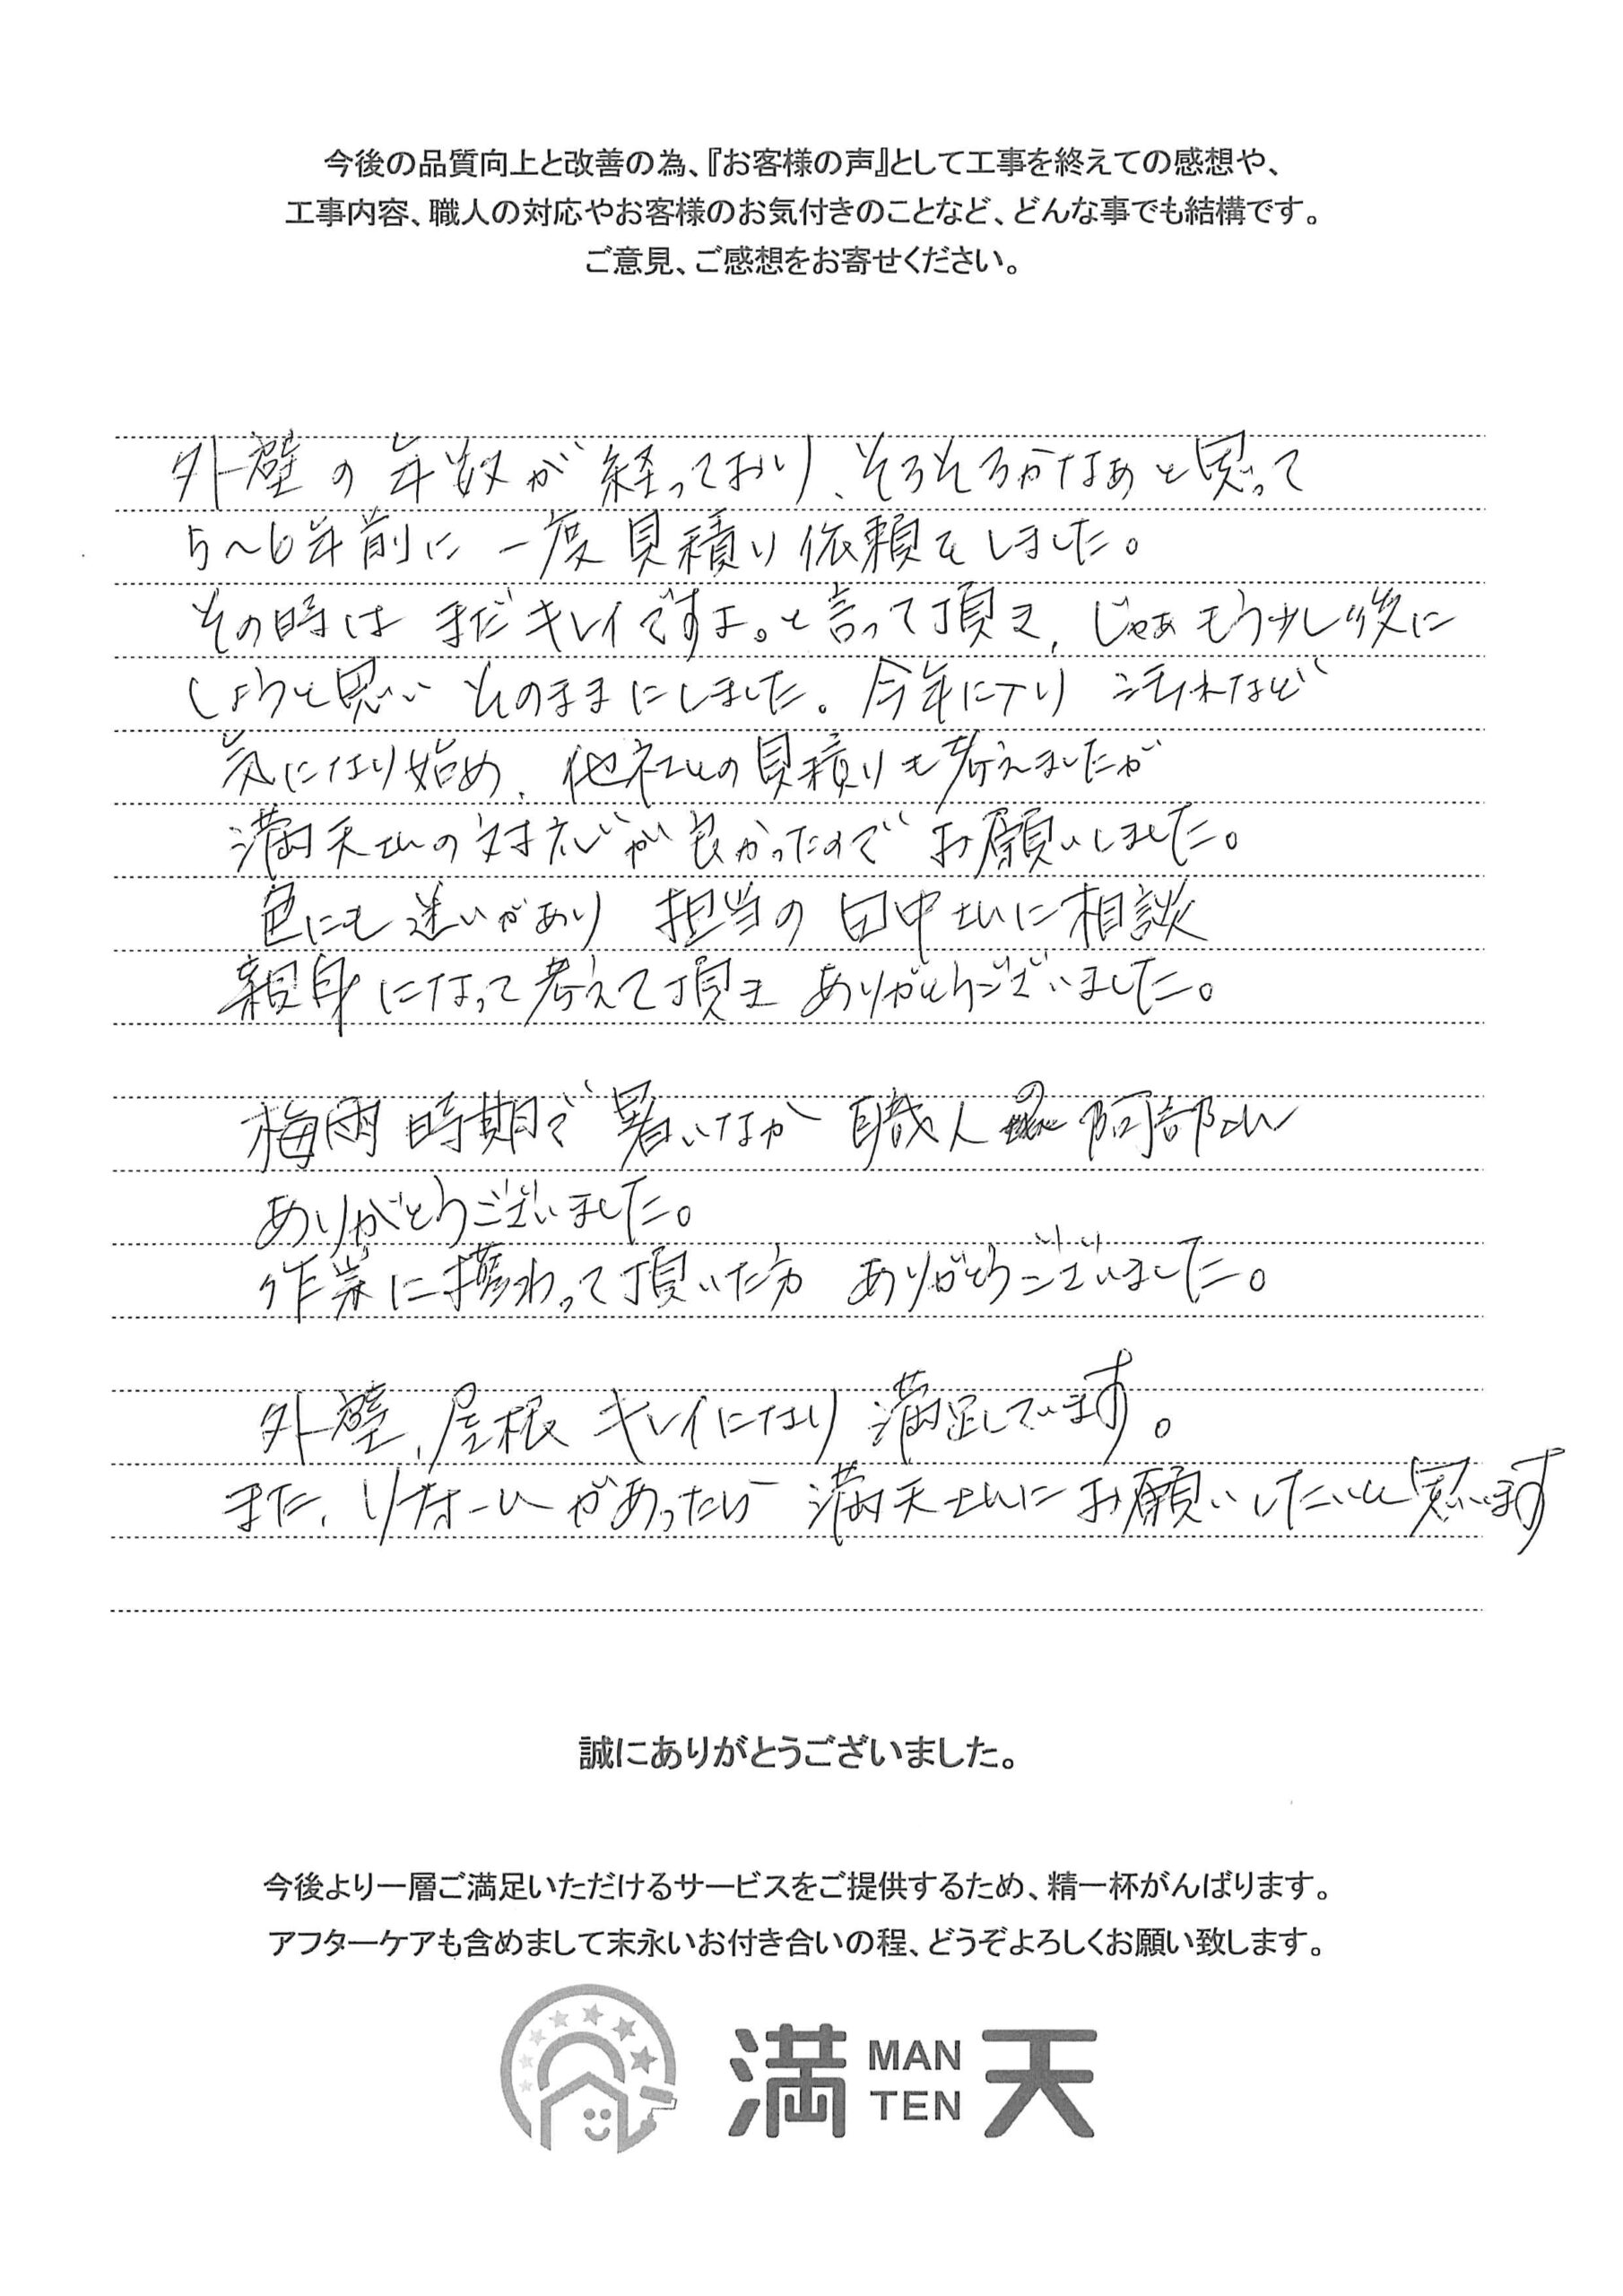 今後の品質向上と改善の為、『お客様の声』として工事を終えての感想や、
工事内容、職人の対応やお客様のお気付きのことなど、どんな事でも結構です。
ご意見、ご感想をお寄せください。
外壁の年数が経っており、そろそろかなぁと思って
5〜6年前に一度見積り依頼をしました。
その時はまだキレイですよ。と言って頂き、じゃぁもう少し後に
しようと思い そのままにしました。今年に入り 汚れなど
気になり始め、他社との見積りも考えましたが
満天さんの対応が良かったので お願いしました。
色にも迷いがあり 担当の田中さんに相談
親身になって考えて頂き ありがとうございました。
梅雨時期で暑いなか 職人の阿部さん
ありがとうございました。
作業に携わって頂いた方 ありがとうございました。
外壁、屋根 キレイになり 満足しています。
また、リフォームがあったら 満天さんにお願いしたいと思います
誠にありがとうございました。
今後より一層ご満足いただけるサービスをご提供するため、精一杯がんばります。
アフターケアも含めまして末永いお付き合いの程、どうぞよろしくお願い致します。
満 MAN TEN 天